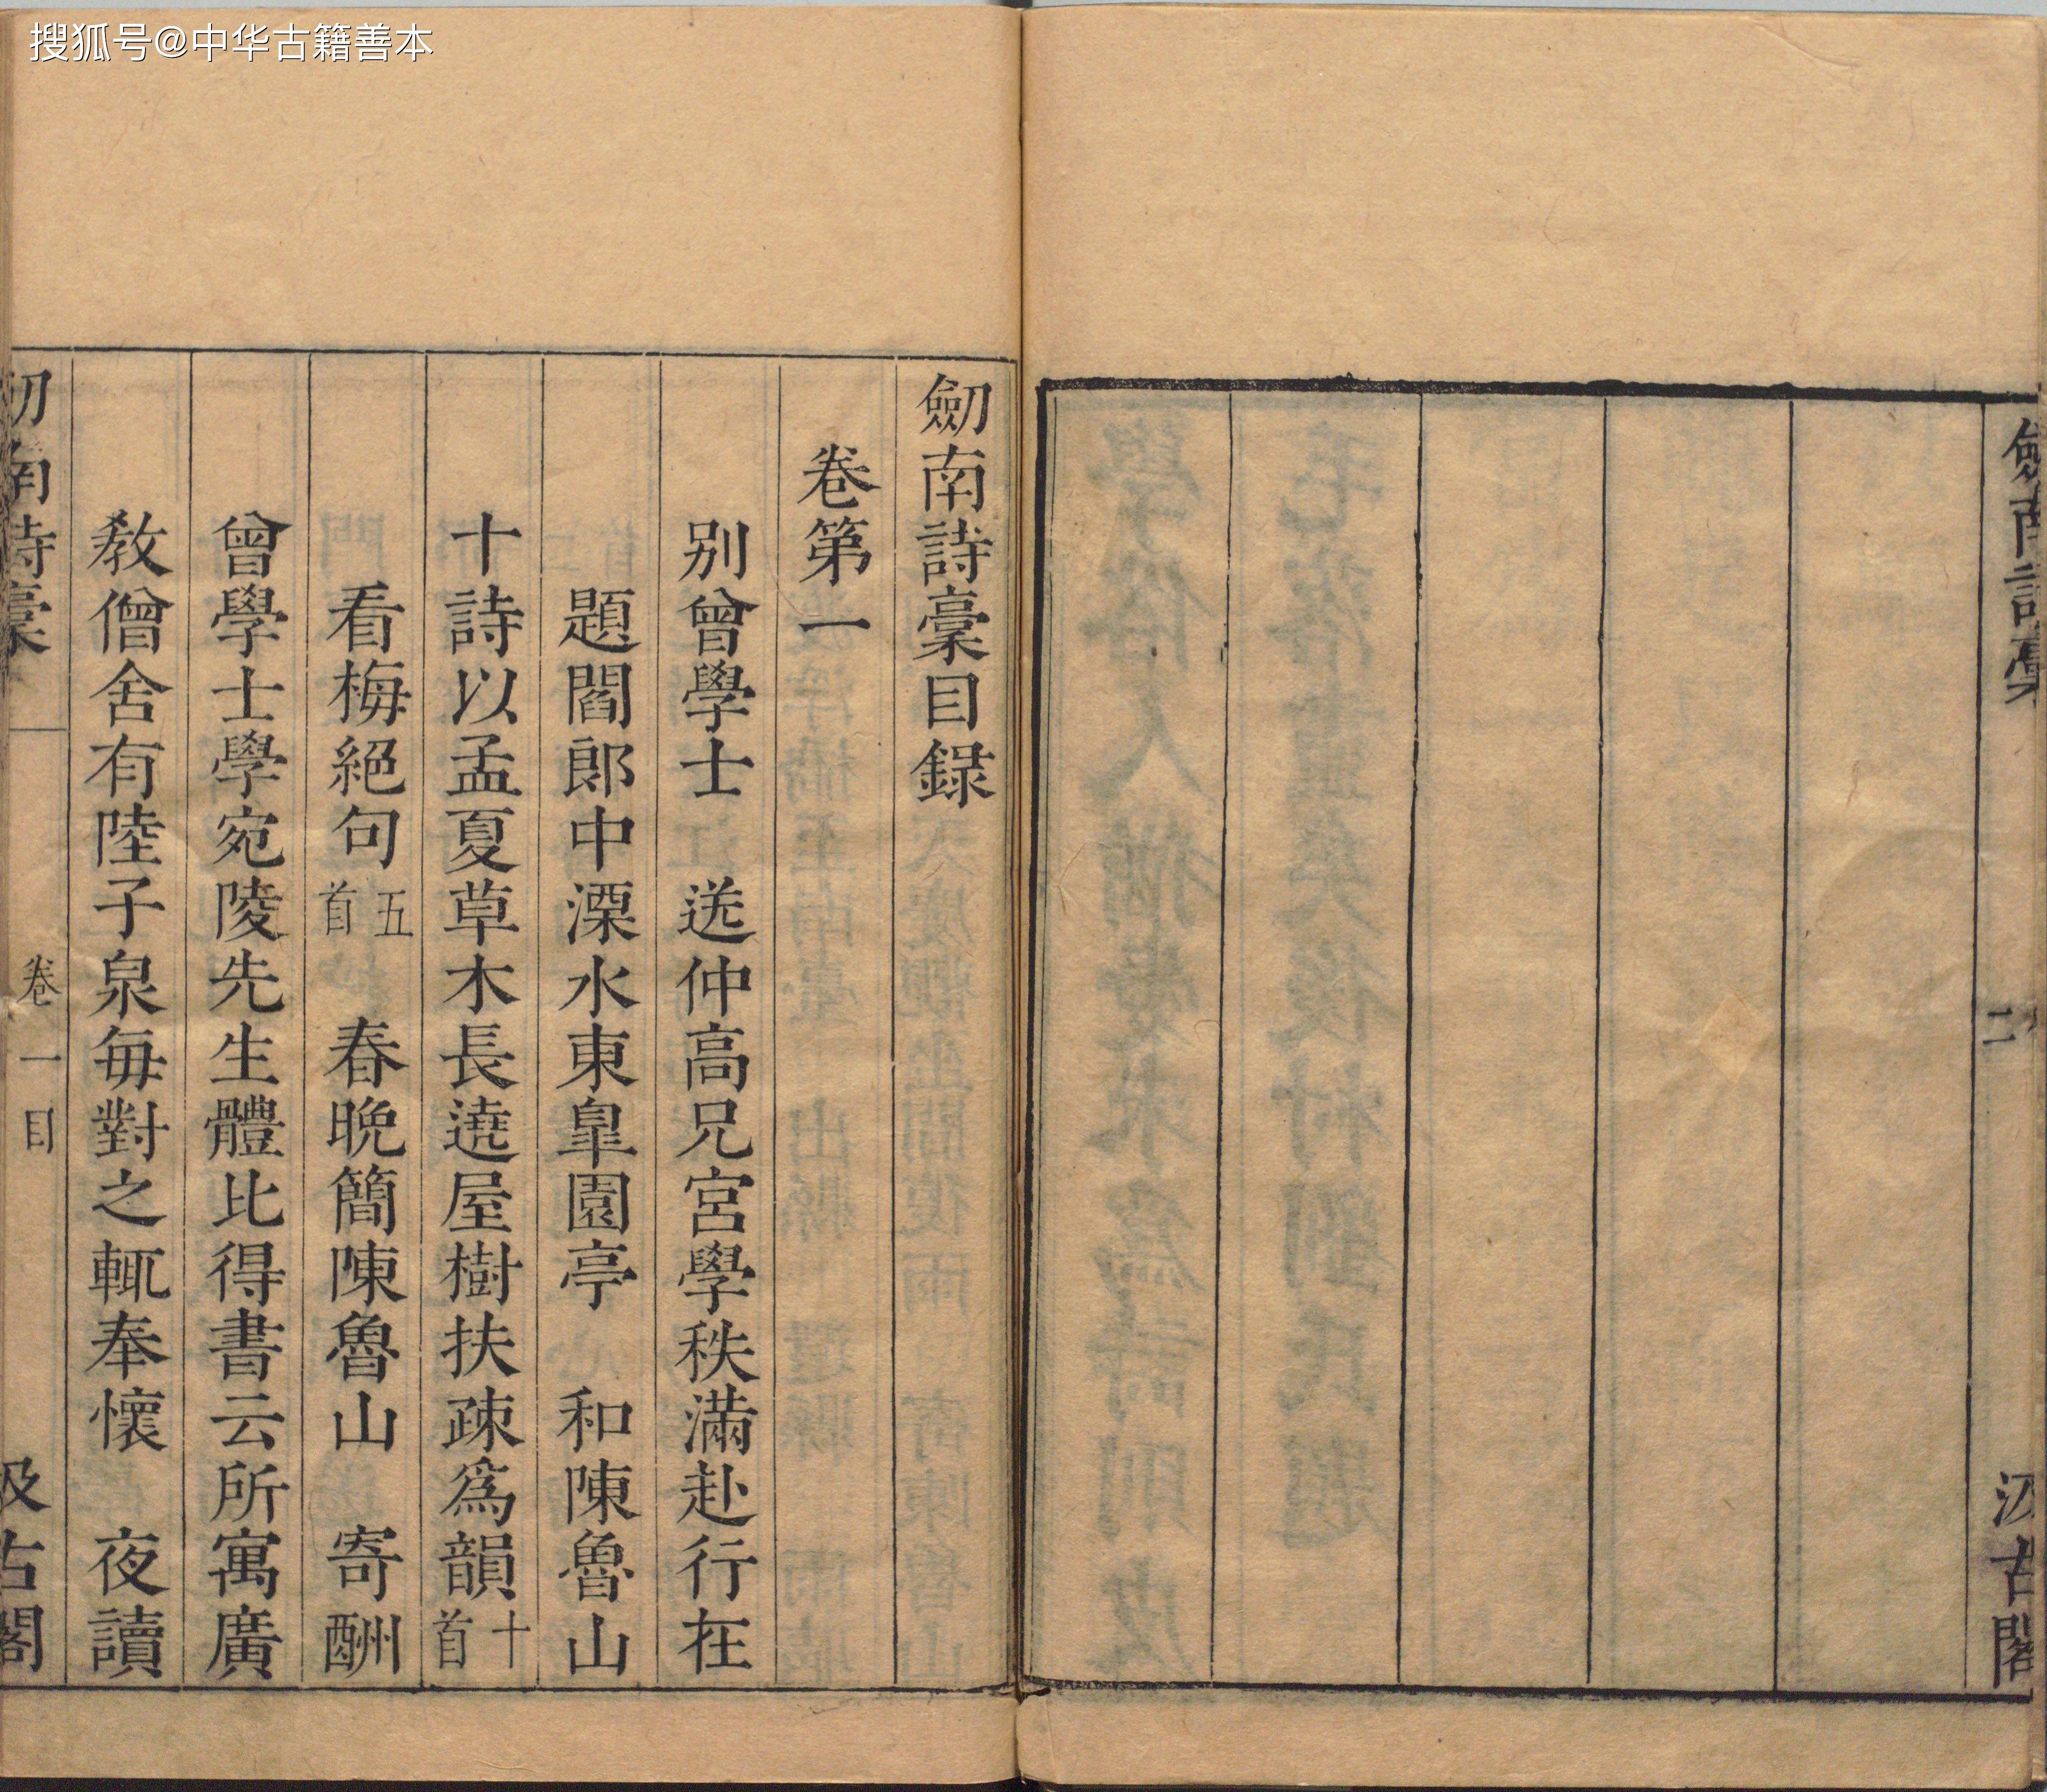 搜狐号@中华古籍善本
劒南詩稾
二
汲古閣
劒南詩稾目録
卷第一
别曾學士　送仲高兄宮學秩滿赴行在
題閻郎中溧水東皐園亭　和陳魯山
十詩以孟夏草木長遶屋樹扶疎爲韻十首
看梅絕句五首　春晚簡陳魯山　寄酬
曾學士學宛陵先生體比得書云所寓廣
教僧舍有陸子泉毎對之輒奉懷　夜讀
劒南詩稾
卷一目
汲古閣